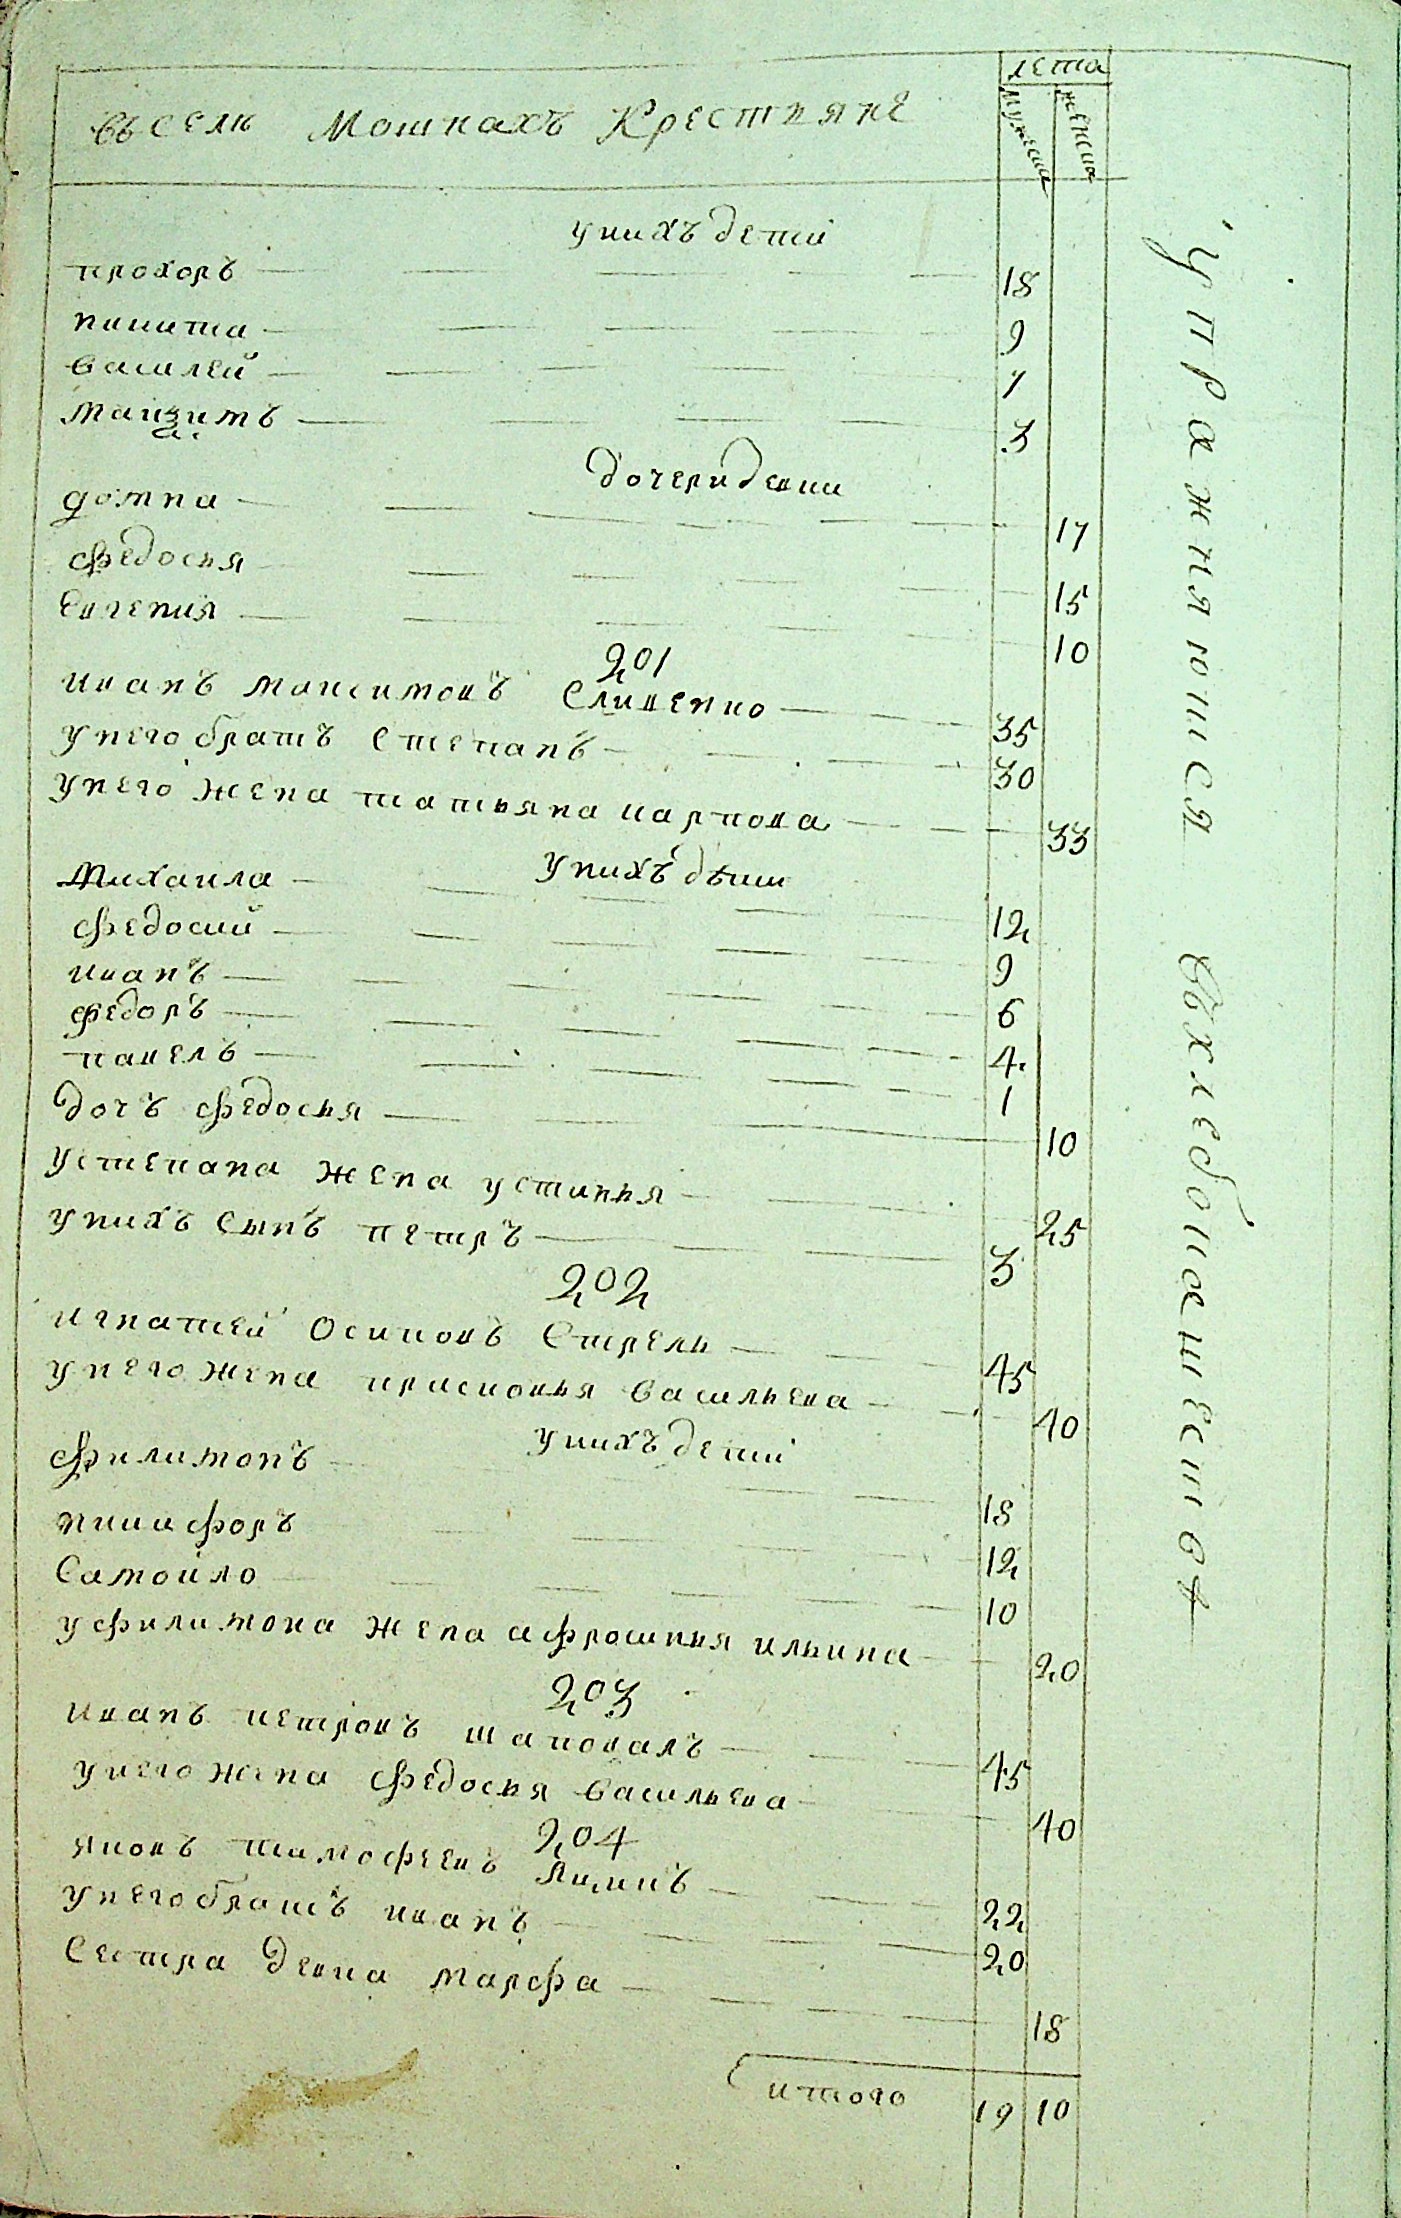 лета
Въ селѣ Мошнахъ Крестьяне
мужеска
женска
у нихъ дети
прохоръ 18
никита 9
василей 7
маѯимъ 3
дочери девки
домна 17
федосья 15
евгения 10
201
иванъ максимовъ Сливенко 35
у него братъ степанъ 30
у него жена татьяна карпова 33
у нихъ дѣти
Михаила 12
федосий 9
иванъ 6
федоръ 4
павелъ 1
дочъ федосья 10
у степана жена устинья 25
у нихъ сынъ петръ 3
202
игнатей осиповъ Стрель 45
у него жена присковья васильева 40
у нихъ дети
филимонъ 18
никифоръ 12
Самойло 10
у филимона жена афросинья ильина 20
203
иванъ петровъ шаповалъ 45
у него жена федосья васильева 40
204
яковъ тимофеевъ 22
у него братъ иванъ 20
Сестра девка марфа 18
итого 19 10
упражняются
въ хлебопашестве